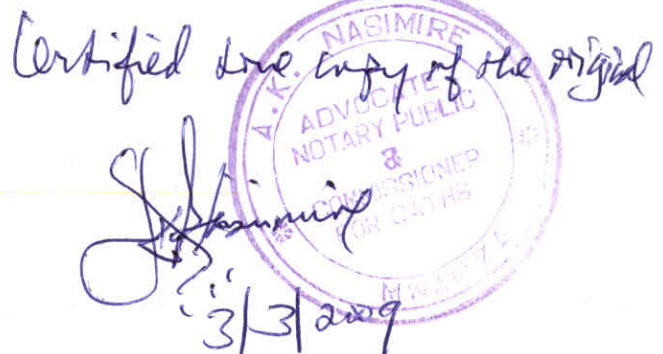 Certified true copy of the original
A.K. NASIMIRE
ADVOCATE
NOTARY PUBLIC
&
COMMISSIONER
FOR OATHS
MWANZA
Nasimire
3/3/2009